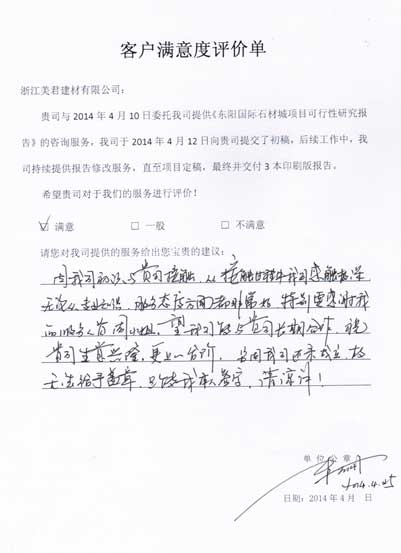 客户满意度评价单
浙江美君建材有限公司：
贵司与 2014 年 4 月 10 日委托我司提供《东阳国际石材城项目可行性研究报
告》的咨询服务，我司于 2014 年 4 月 12 日向贵司提交了初稿，后续工作中，我
司持续提供报告修改服务，直至项目定稿，最终并交付 3 本印刷版报告。
希望贵司对于我们的服务进行评价！
☑ 满意 □ 一般 □ 不满意
请您对我司提供的服务给出您宝贵的建议：
因我司初次与贵司接触，从接触过程中我司感触很深
无论从专业知识、服务态度方面都非常好 特别要感谢我
的服务人员周小姐，望我司能与贵司长期合作，祝
贵司生意兴隆，更上一台阶，
无法给予盖章，只能我本人签字，请谅解！
单位公章
2014.4.25
日期：2014 年 4 月 日